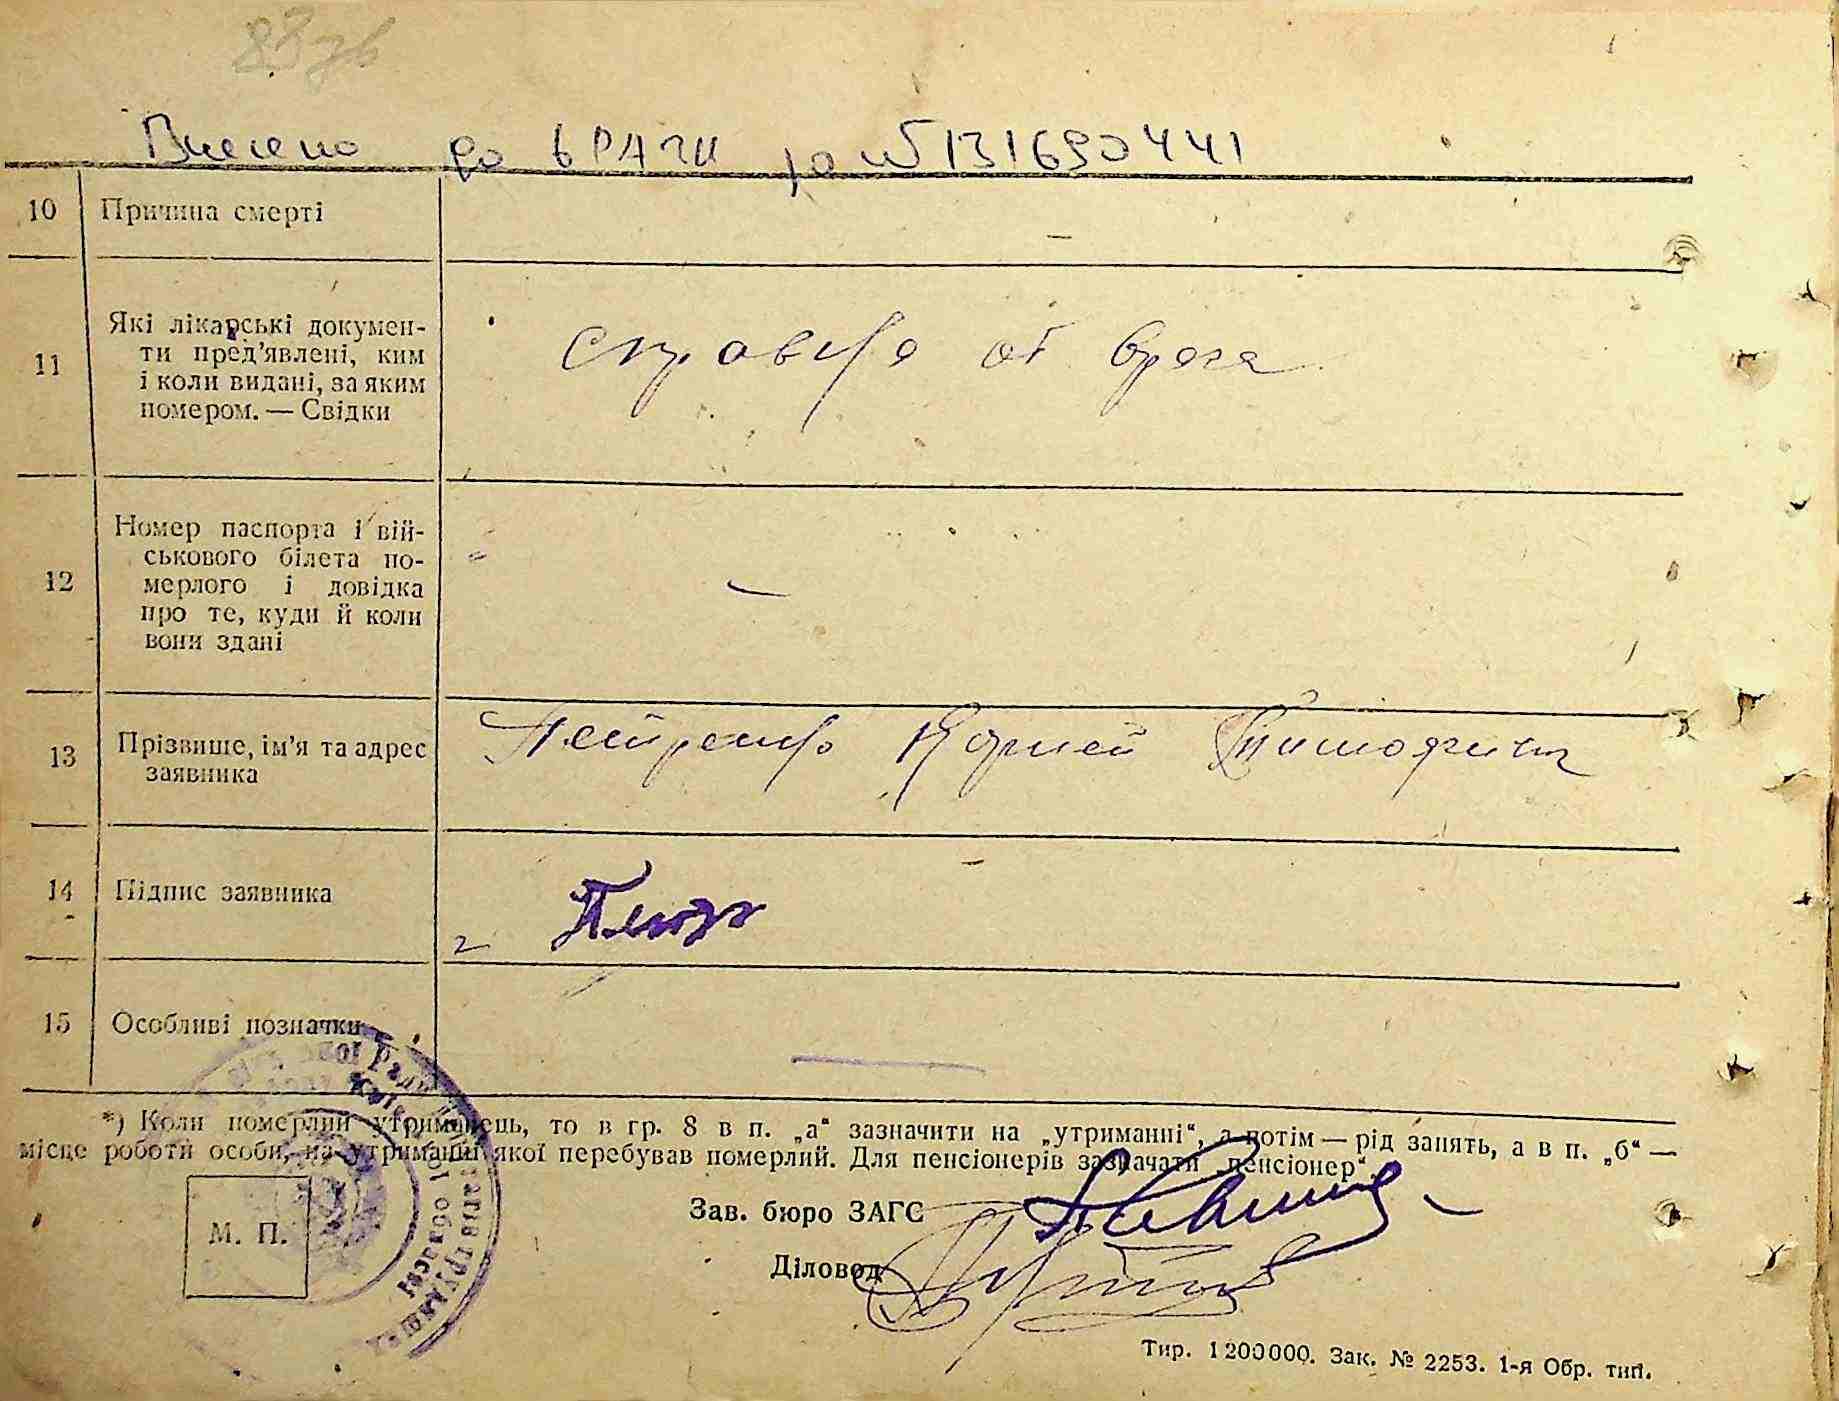 83 зв
Внесено до ДРАЦСГ за № 131690441
10 Причина смерті –
11 Які лікарські докумен-
ти пред'явлені, ким
і коли видані, за яким
номером. — Свідки
справка от врача
12 Номер паспорта і вій-
ськового білета по-
мерлого і довідка
про те, куди й коли
вони здані
–
13 Прізвище, ім'я та адрес
заявника
Петренко Корней Тимофиич
14 Підпис заявника
15 Особливі позначки —
*) Коли померлий утриманець, то в гр. 8 в п. „а“ зазначити на „утриманні“, а потім — рід занять, а в п. „б“ —
місце роботи особи, на утриманні якої перебував померлий. Для пенсіонерів зазначати „пенсіонер“.
Зав. бюро ЗАГС
М. П.
Діловод
Тир. 1200000. Зак. № 2253. 1-я Обр. тип.